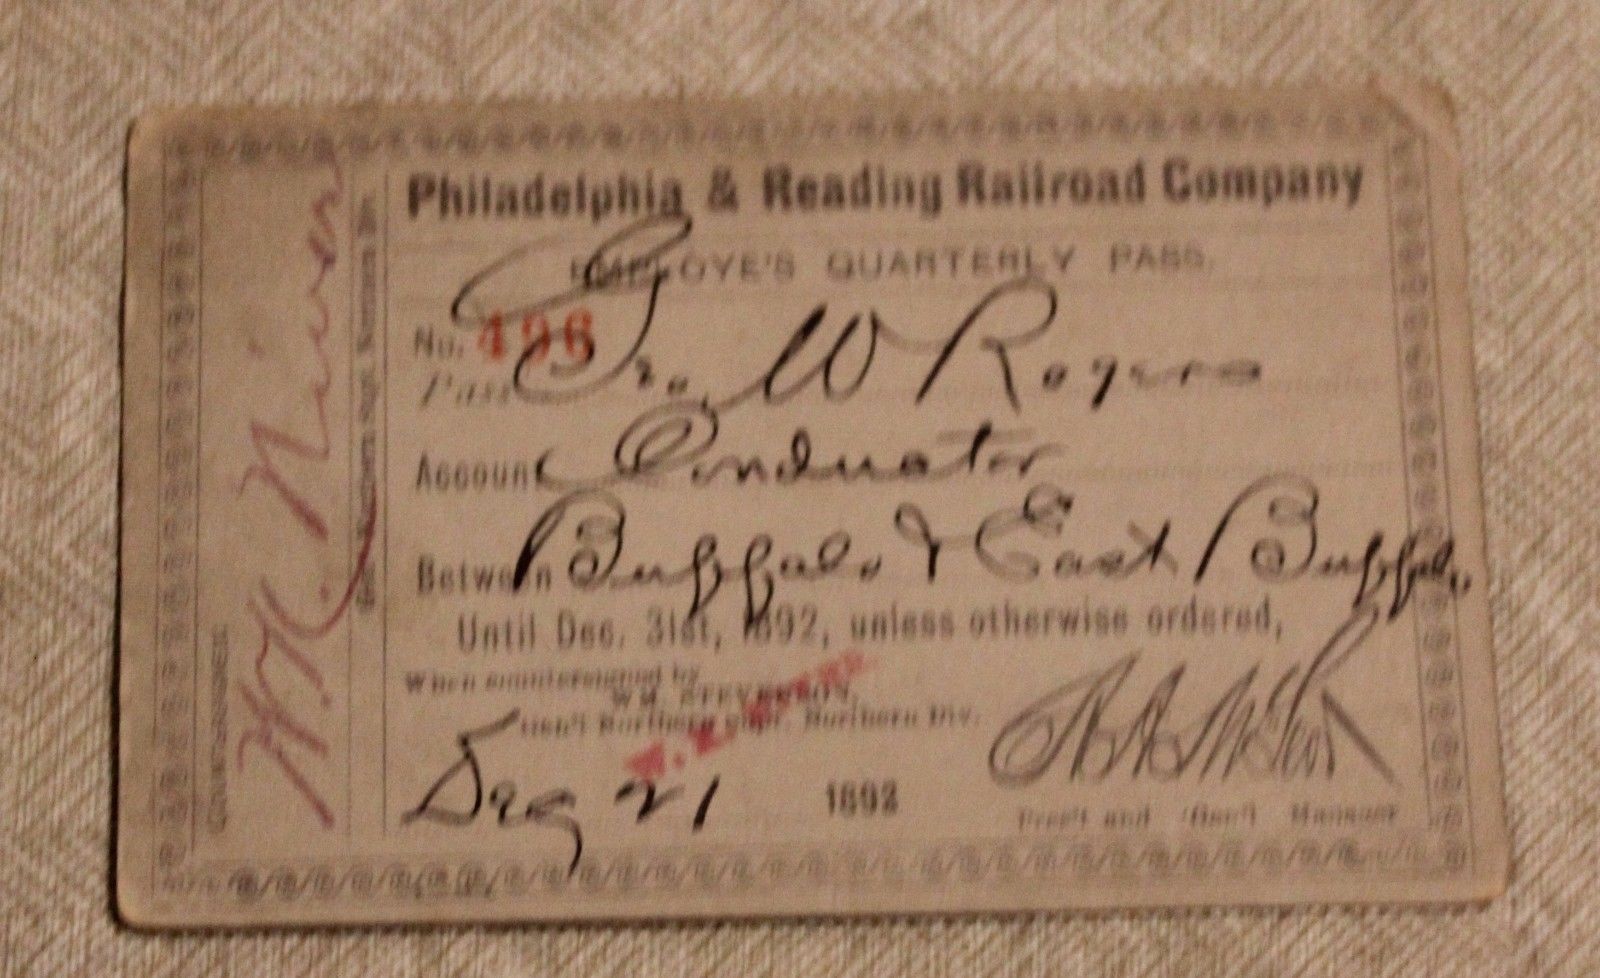 Philadelphia & Reading Railroad Company
EMPLOYE'S QUARTERLY PASS.
No. 496
Pass Geo. W Rogers
Account Conductor
Between Buffalo & East Buffalo.
Until Dec. 31st, 1892, unless otherwise ordered,
When countersigned by
WM. STEVENSON,
Gen'l Northern Supt. Northern Div.
1892
Pres't and Gen'l Manager